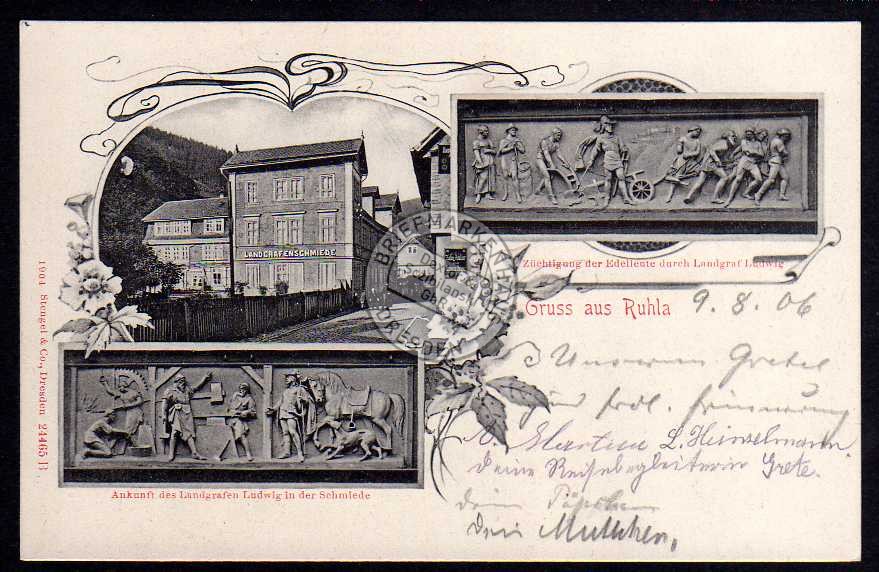 LANDGRAFENSCHMIEDE
Züchtigung der Edelleute durch Landgraf Ludwig
Gruss aus Ruhla 9. 8. 06
Unserem Gretel
zur frdl. Erinnerung
Martine L. Heinselmann
deine Reisebegleiterin Grete.
dein
dein Muttchen,
Ankunft des Landgrafen Ludwig in der Schmiede
1904 Stengel & Co., Dresden 24465 B
BRIEFMARKENHAN
DRESDEN
GbR